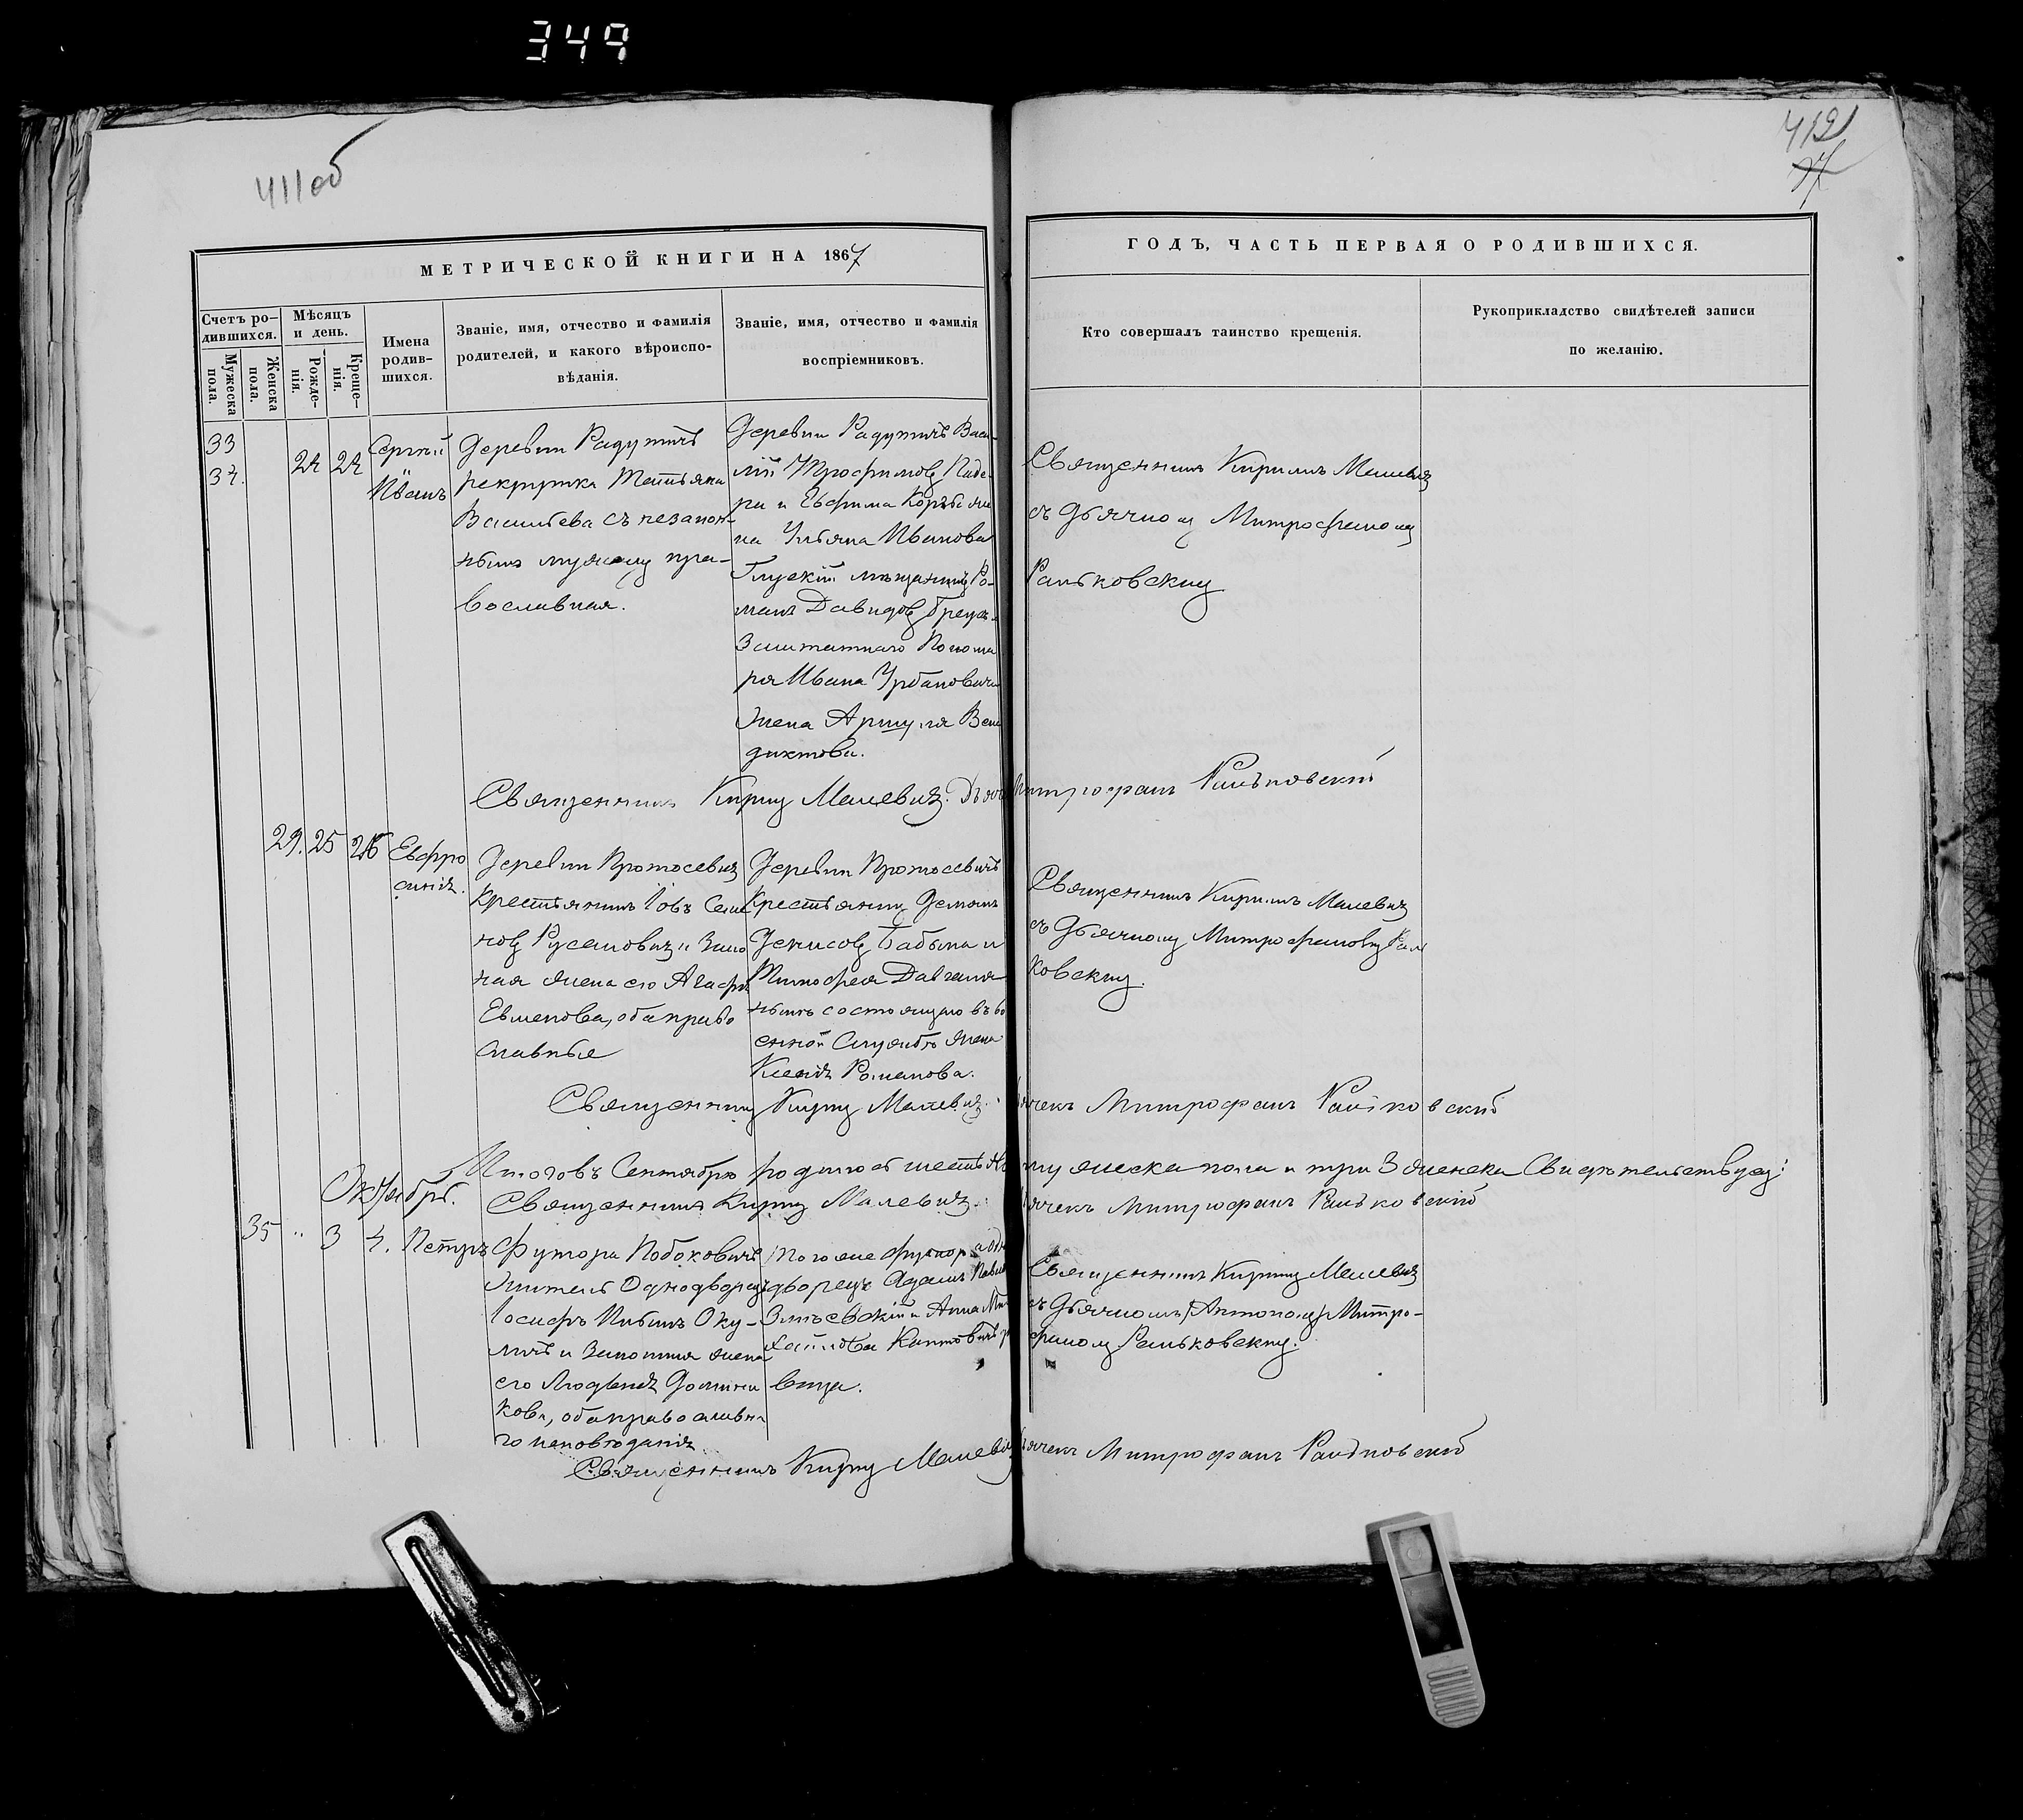 349
411об
412
МЕТРИЧЕСКОЙ КНИГИ НА 1867
ГОДЪ, ЧАСТЬ ПЕРВАЯ О РОДИВШИХСЯ.
Счетъ ро-
дившихся.
Мужеска
пола.
Женска
пола.
Мѣсяцъ
и день.
Рожде-
нія.
Креще-
нія.
Имена
родив-
шихся.
Званіе, имя, отчество и фамилія
родителей, и какого вѣроиспо-
вѣданія.
Званіе, имя, отчество и фамилія
воспріемниковъ.
Кто совершалъ таинство крещенія.
Рукоприкладство свидѣтелей записи
по желанію.
33
34.
24 24
Сергій
Иванъ
Деревни Радутичъ
рекрутка Татьяна
Васильева съ незакон-
нымъ мужему пра-
вославная.
Деревни Радутичъ Васи-
лій Трофимовъ
и Евфима
на Ульяна Иванова
Глускій мѣщанинъ Ро-
манъ Давидовъ
Заштатнаго Понома
ря Ивана Урбановича
жена Вене
диктова.
Священникъ Кирилъ Малевич
съ дьячкомъ Митрофаномъ
Раньковскимъ
Священникъ Кирилъ Малевич. Дьячекъ Митрофанъ Раньковскій
29. 25 26
Евфро
синія.
Деревни Протасевич
Крестьянинъ Іовъ Семе
новъ Русановичъ и Зако
ная жена его Агафія
Евменова, оба право
славные
Деревни Протасевичъ
Крестьянинъ Демьянъ
Денисовъ Бабына и
Тимофея
состоящаго въ во
енной службѣ жена
Ксенія Романова.
Священникъ Кирилъ Малевич
съ дьячкомъ Митрофаномъ Рань
ковскимъ.
Священникъ Кирилъ Малевич. Дьячекъ Митрофанъ Раньковскій
Итого въ Сентябрѣ родилось шесть мужеска пола и три 3 женска Свидѣтельствуемъ:
Священникъ Кирилъ Малевич. Дьячекъ Митрофанъ Раньковскій
Октябрь.
35 .. 3 4. Петръ
Футора Побоковичъ
житель Однодворецъ
Іосифъ Оку-
личъ и Законная жена
его Людвика Домини
кова, оба православна
го исповѣданія.
Того же футора одно
дворецъ Адамъ
и Анна Ми
хайлова
вица.
Священникъ Кирилъ Малевич
съ дьячкомъ /Антономъ/ Митро-
фаномъ Раньковскимъ.
Священникъ Кирилъ Малевич Дьячекъ Митрофанъ Раньковскій